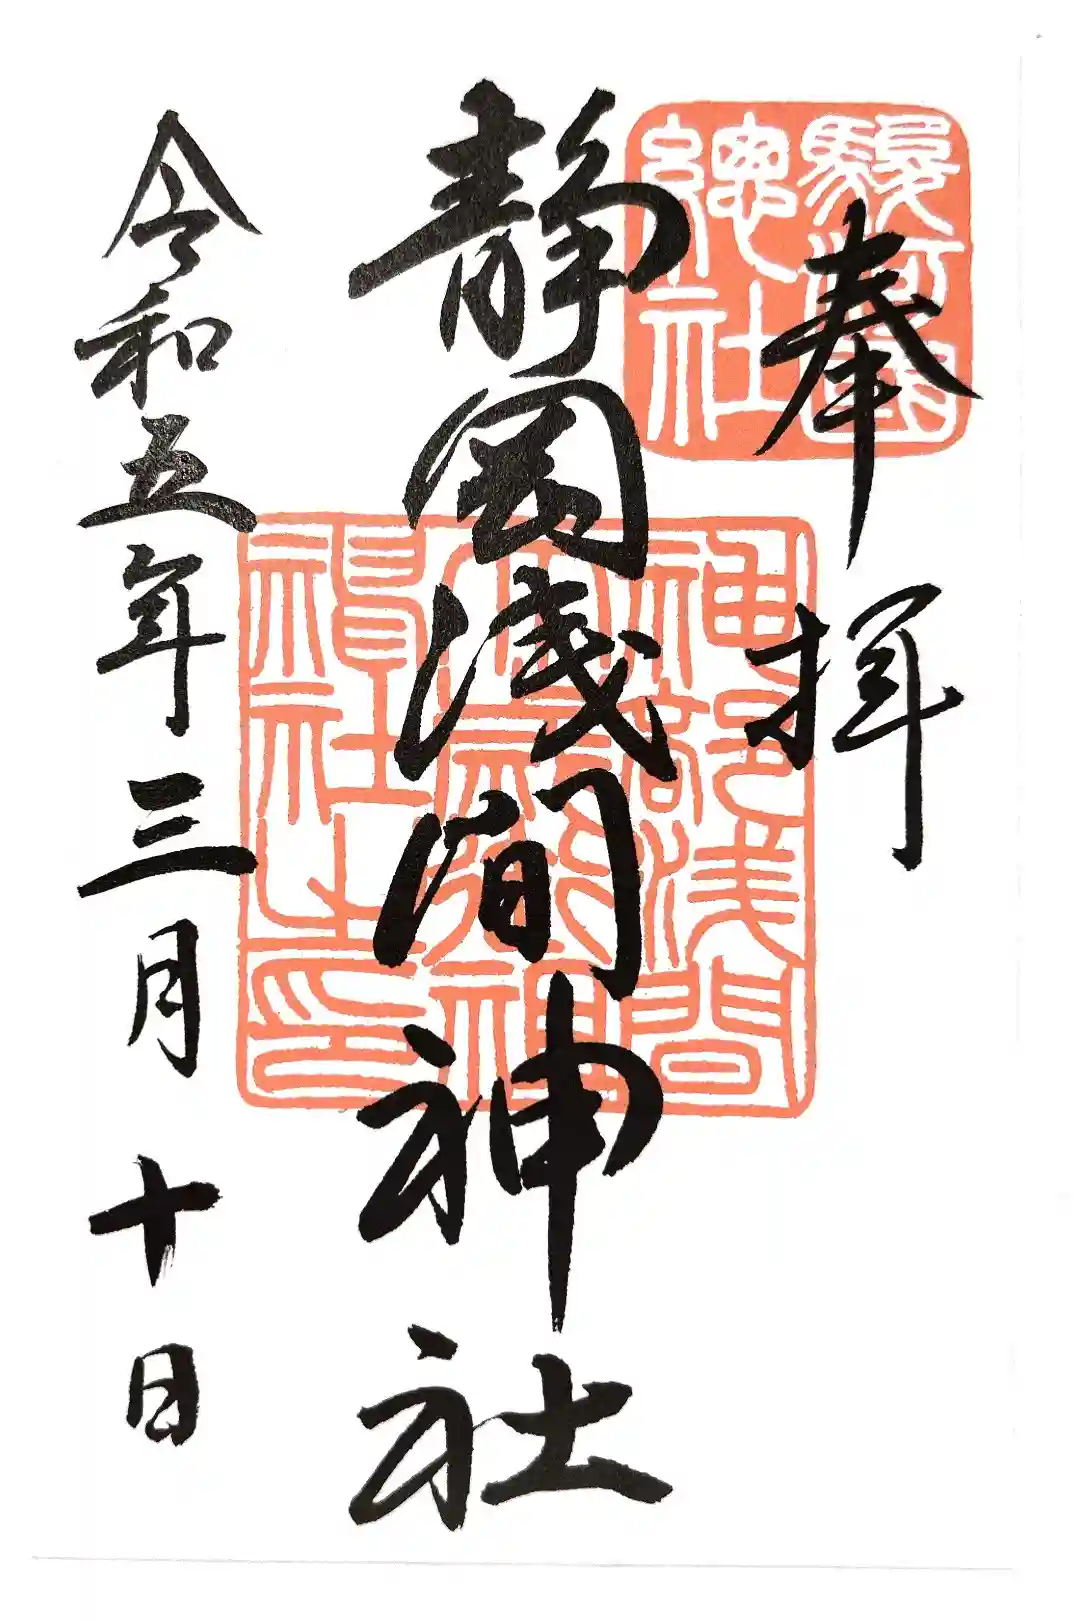 奉拝
駿河國
總社
静岡浅間神社
神部浅間
大歳御祖
神社之印
令和五年三月十日